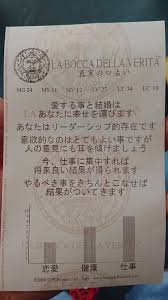 LA BOCCA DELLA VERITA'
真実の口占い
MG 24 MS 11 MV 12 LV 27 LT 34 LC 18
愛する事と結婚は
あなたに幸せを運びます
あなたはリーダーシップ的存在です
意欲的なのはとてもよい事ですが
人の意見にも耳を傾けましょう
今、仕事に集中すれば
将来良い結果が得られます
やるべき事をきちんとこなせば
結果がついてきます
恋愛 健康 仕事